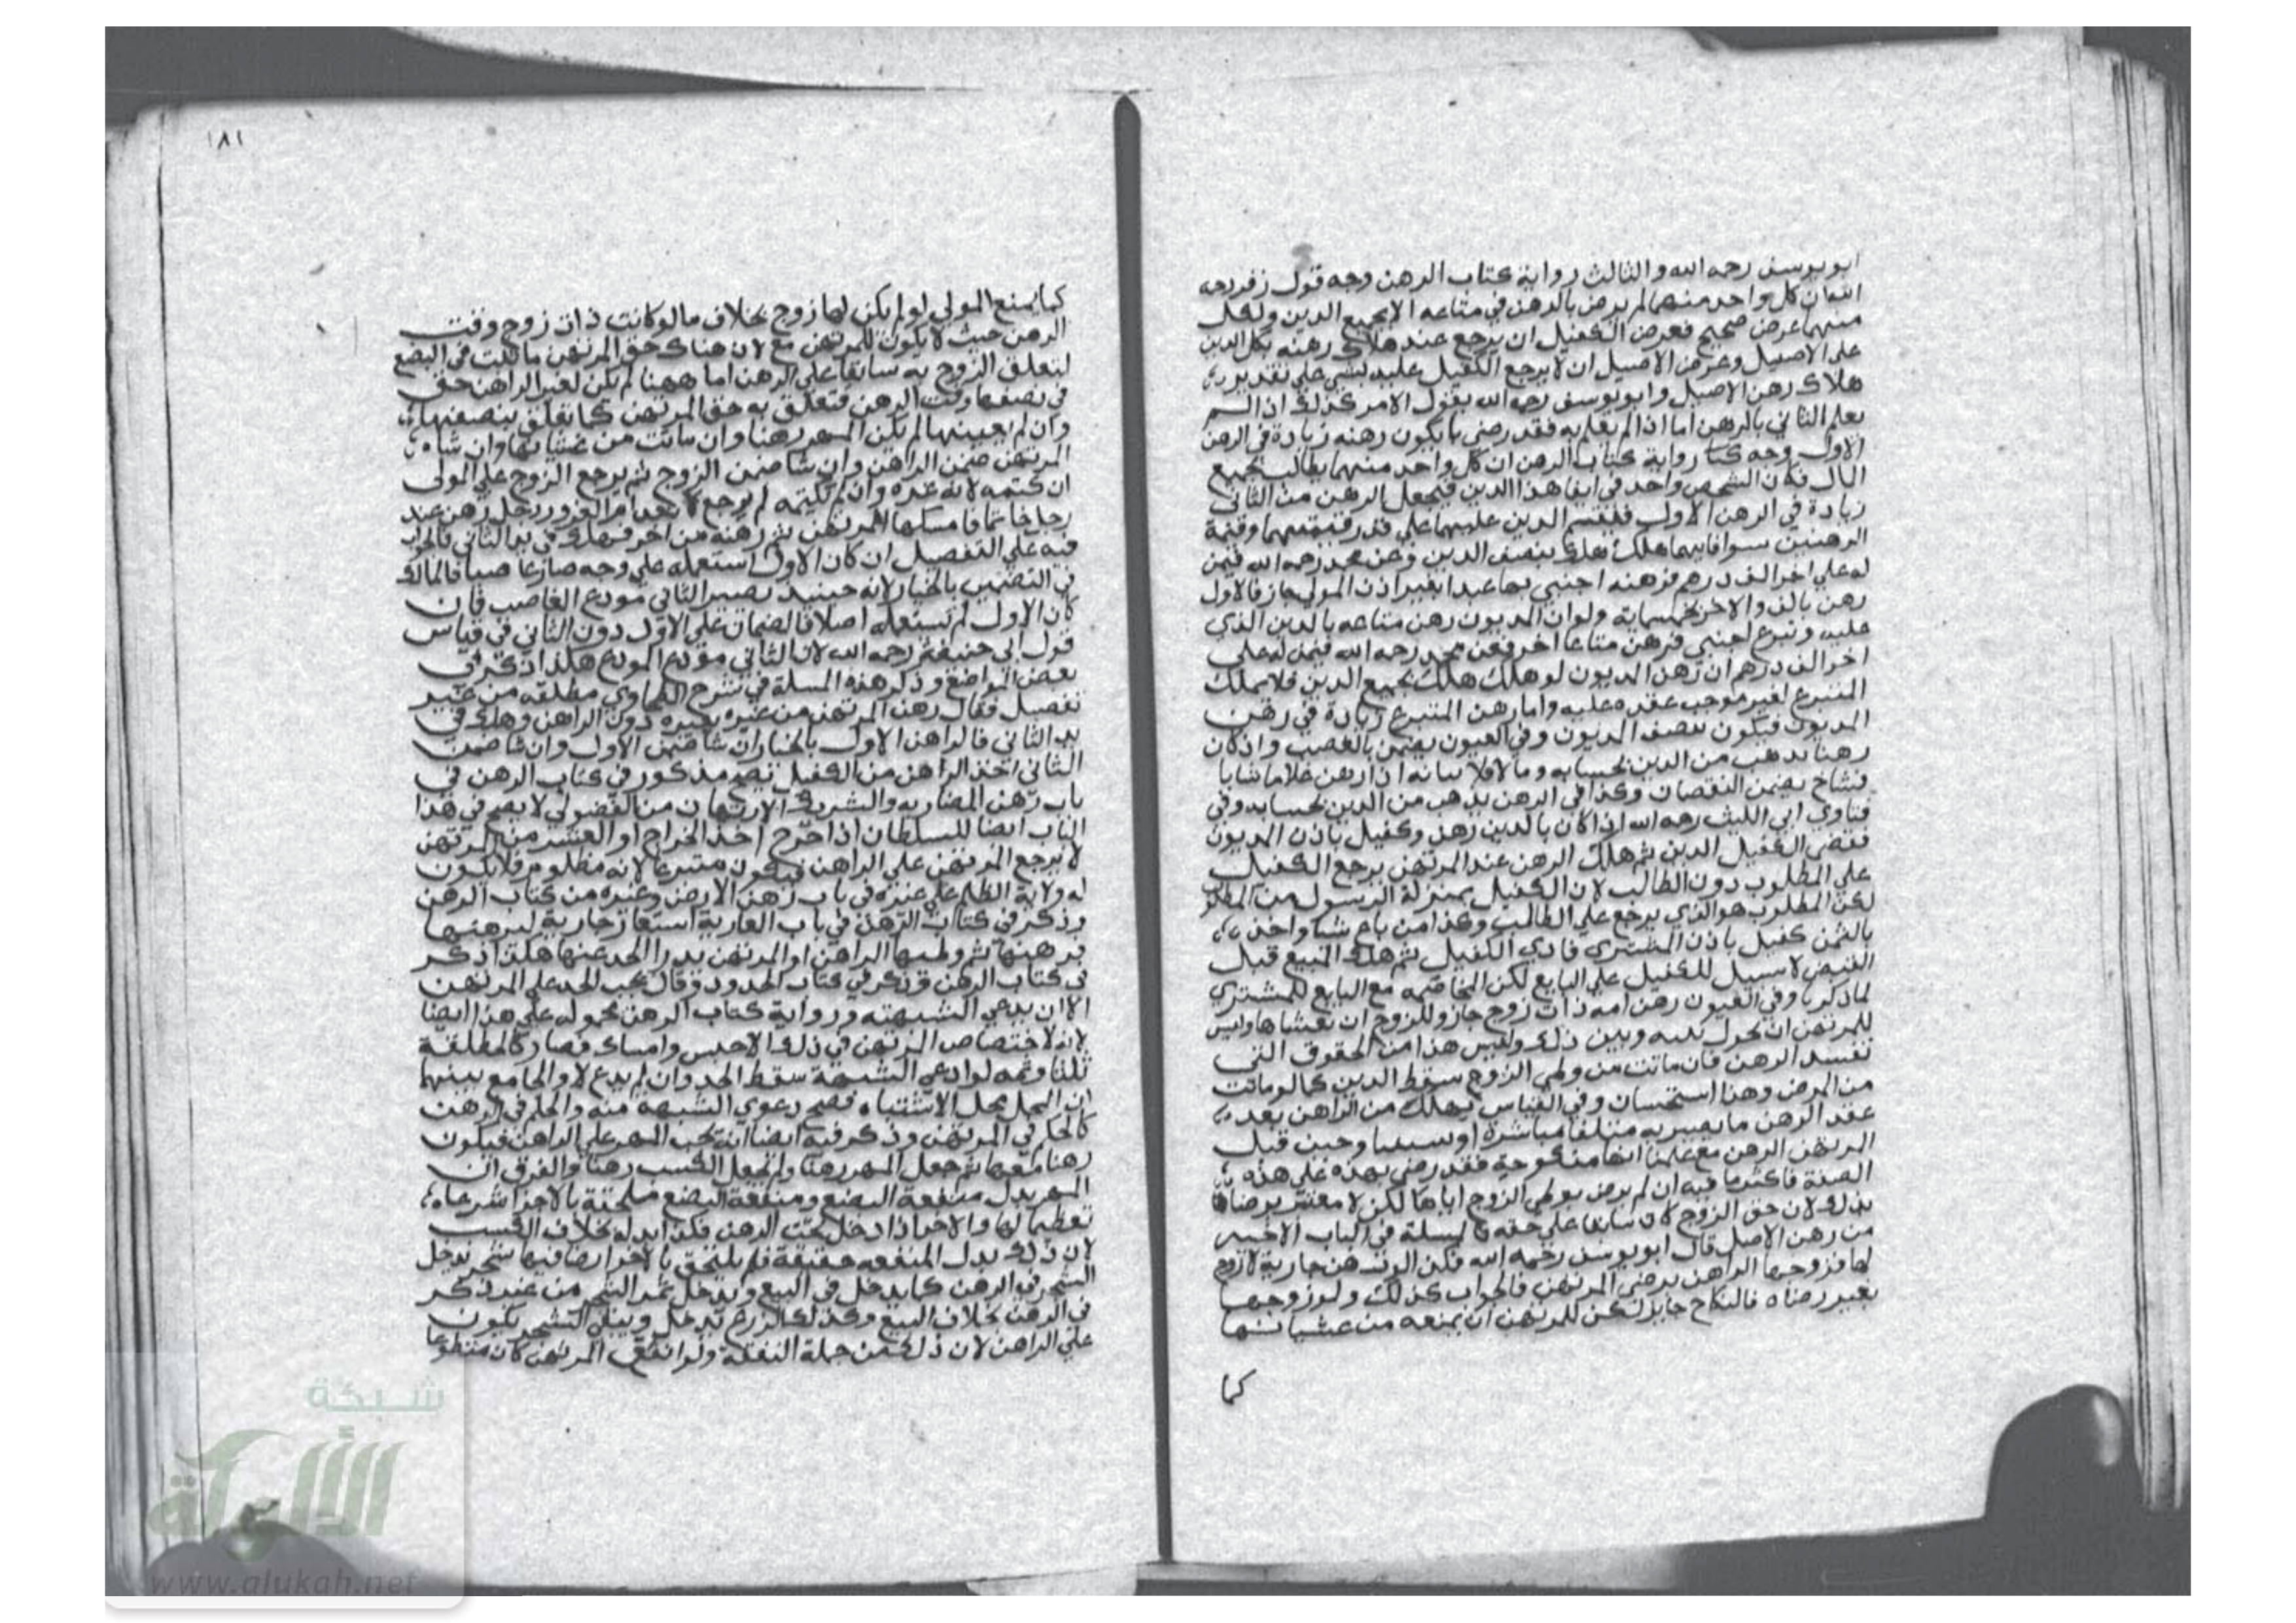 ابو يوسف رحمه الله والثالث رواية كتاب الرهن وجه قول زفر رحمه
الله ان كل واحد منهما لم يرض بالرهن في متاعه الا بجميع الدين ولكل
منهما عرض صحيح فعرض الكفيل ان يرجع عند هلاك رهنه بكل الدين
على الاصيل وعرض الاصيل ان لا يرجع الكفيل عليه بشي على تقدير
هلاك رهن الاصيل وابو يوسف رحمه الله يقول الامر كذلك اذا لم
يعلم الثاني بالرهن اما اذا لم يعلم به فقد رضي بان يكون رهنه زيادة في الرهن
الاول وجه رواية كتاب الرهن ان كل واحد منهما يطالب بجميع
المال فكان الشخص واحد في ايفا هذا الدين فيجعل الرهن من الثاني
زيادة في الرهن الاول فيقسم الدين عليهما على قدر قيمتهما وقيمة
الرهنين سوا فايهما هلك هلك بنصف الدين وعن محمد رحمه الله فيمن
له على اخر الف درهم فرهنه اجنبي بها عبدا بغير اذن المولى جاز فالاول
رهن بالف والاخر بخمسماية ولو ان المديون رهن متاعه بالدين الذي
عليه وتبرع اجنبي فرهن متاعا اخر فعن محمد رحمه الله فيمن له على
اخر الف درهم ان رهن المديون لو هلك هلك بجميع الدين فلا يملك
المتبرع لغير موجب عقده عليه واما رهن المتبرع زيادة في رهن
المديون فيكون بنصف الديون وفي العيون يضمن بالغصب وان كان
رهنا يذهب من الدين بحسابه وما لا فلا بيانه اذا رهن غلاما شابا
فشاخ يضمن النقصان وكذا في الرهن يذهب من الدين بحسابه وفي
فتاوي ابي الليث رحمه الله اذا كان بالدين رهن وكفيل باذن المديون
فقضى الكفيل الدين ثم هلك الرهن عند المرتهن يرجع الكفيل
على المطلوب دون الطالب لان الكفيل بمنزلة الرسول من المطلو
لكن المطلوب هو الذي يرجع على الطالب وكذا من باع شيا واخذ
بالثمن كفيل باذن المشتري فادى الكفيل ثم هلك المبيع قبل
القبض لا سبيل للكفيل على البايع لكن المخاصمه مع البايع للمشتري
لما ذكرنا وفي العيون رهن امه ذات زوج جاز وللزوج ان يغشاها وليس
للمرتهن ان يحول بينه وبين ذلك وليس هذا من الحقوق التي
تفسد الرهن فان ماتت من وطي الزوج سقط الدين كما لو ماتت
من المرض وهذا استحسان وفي القياس يهلك من الراهن بعد
عقد الرهن ما يصير به متلفا مباشرة او سببا وحين قبل
المرتهن الرهن مع علمنا انها منكوحة فقد رضي بهذه على هذه
الصفة فاكثر ما فيه ان لم يرض بوطي الزوج اياها لكن لا معتبر برضاها
بذلك لان حق الزوج كان سابقا على حقه فالمسلة في الباب الاخير
من رهن الاصل قال ابو يوسف رحمه الله فكن الرهن جارية لا زوج
لها فزوجها الراهن برضى المرتهن فالجواب كذلك ولو زوجها
بغير رضاه فالنكاح جايز لكن للمرتهن ان يمنعه من غشيانها
كما
١٨١
كما يمنع المولى لو لم يكن لها زوج بخلاف ما لو كانت ذات زوج وقت
الرهن حيث لا يكون للمرتهن منع لان هناك حق المرتهن ما ثبت في البضع
لتعلق الزوج به سابقا على الرهن اما ههنا لم يكن لغير الراهن حق
في بضعها وقت الرهن فتعلق به حق المرتهن كما تعلق ببضعها
وان لم يعينها لم يكن المهر رهنا وان ماتت من غشيانها وان شاء
المرتهن ضمن الراهن وان شا ضمن الزوج ثم يرجع الزوج على المولى
ان كتمه لانه غره وان لم يكتمه لم يرجع لانعدام الغرور رجل رهن عند
رجل خاتما فامسكها المرتهن ثم رهنه من اخر فهلك في يد الثاني فالجواب
فيه على التفصيل ان كان الاول استعمله على وجه صار غاصبا فالمالك
في التضمين بالخيار لانه حينيذ يصير الثاني مودع الغاصب فان
كان الاول لم يستعمله اصلا فالضمان على الاول دون الثاني في قياس
قول ابي حنيفة رحمه الله لان الثاني مودع المودع هكذا ذكر في
بعض المواضع وذكر هذه المسلة في شرح الطحاوي مطلقه من غير
تفصيل فقال رهن المرتهن من غيره بغيره دون الراهن وهلك في
يد الثاني فالراهن الاول بالخيار ان شا ضمن الاول وان شا ضمن
الثاني اخذ الراهن من الكفيل يصح مذكور في كتاب الرهن في
باب رهن المضاربه والشريك الارتهان من الفضولي لا يصح في هذا
الباب ايضا للسلطان اذا خرج اخذ الخراج او العشر من المرتهن
لا يرجع المرتهن على الراهن فيكون متبرعا لانه مظلوم فلا يكون
له ولاية الظلم على غيره في باب رهن الارض وغيره من كتاب الرهن
وذكر في كتاب الرهن في باب العارية استعار جارية ليرهنها
فرهنها ثم وطيها الراهن او المرتهن يدرا الحد عنها هكذا ذكر
في كتاب الرهن وذكر في كتاب الحدود وقال يجب الحد على المرتهن
الا ان يدعي الشبهة ورواية كتاب الرهن محموله على هذا ايضا
لانه لاختصاص المرتهن في ذلك الاحبس وامساك فصار كالمطلقة
ثلثا وثمه لو ادعى الشبهة سقط الحد وان لم يدع لا والجامع بينهما
ان المحل محل الاشتباه فصح دعوى الشبهة منه والحكم في الرهن
كالحكم في المرتهن وذكر فيه ايضا انه يجب المهر على الراهن فيكون
رهنا معها ثم جعل المهر رهنا ولم يجعل الكسب رهنا والفرق ان
المهر بدل منفعة البضع ومنفعة البضع ملحقة بالاجزا شرعا
تعظيما لها والاجزا داخل تحت الرهن فكذا بدله بخلاف الكسب
لان ذلك بدل المنفعه حقيقة فلم يلتحق بالاجزا ارضا فيها شجر يدخل
الشجر في الرهن كما يدخل في البيع ويدخل ثمر الشجر من غير ذكر
في الرهن بخلاف البيع وكذلك الزرع يدخل ويبقى الشجر يكون
على الراهن لان ذلك من جملة النفقة ولو انفق المرتهن كان متطوعا
شبكة
الألوكة
www.alukah.net